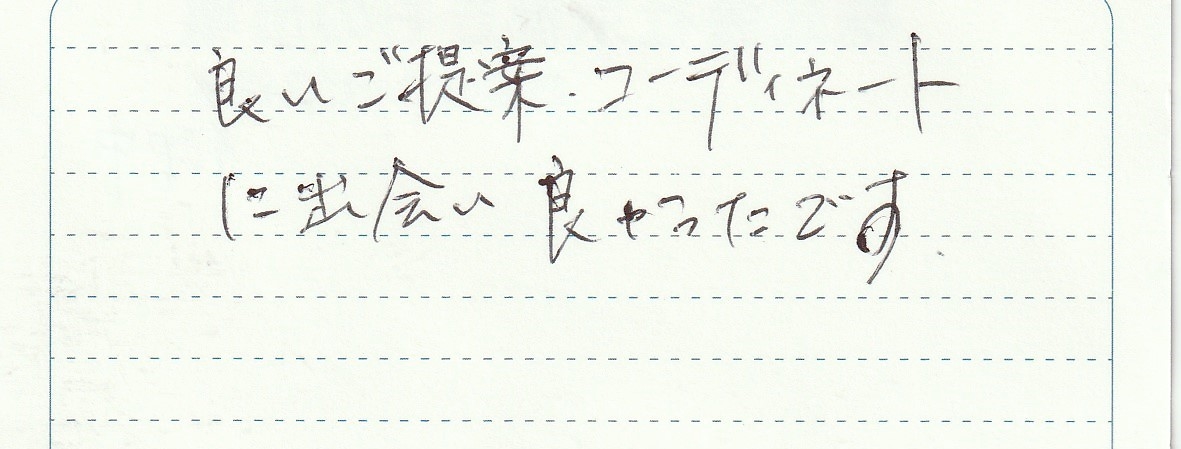 良いご提案・コーディネート
に出会い良かったです